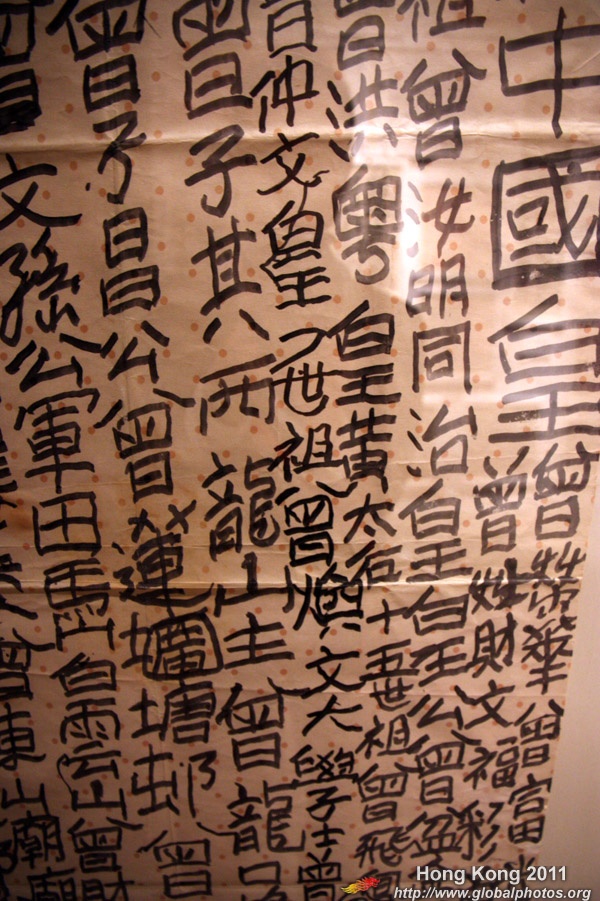 中國皇
曾榮華曾富
曾姓財文福彩
祖曾汝明同治皇皇公曾盆
曾洪粵皇黃太后十五世祖曾飛
曾仲文皇乃世祖曾煥文大學士曾
曾子其八西龍山主曾龍
曾子昌公曾蓮塘邨曾
文孫公軍田白雲山曾財
曾東山廟
Hong Kong 2011
http://www.globalphotos.org